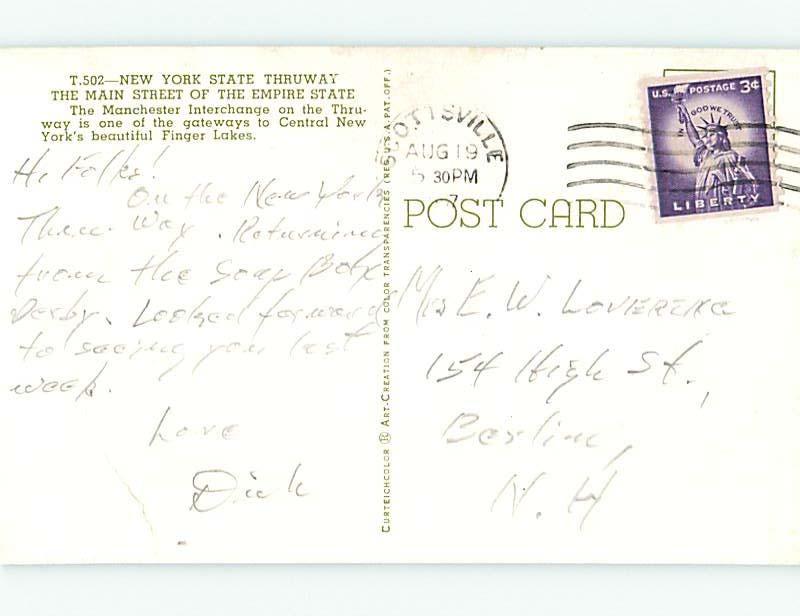 T.502—NEW YORK STATE THRUWAY
THE MAIN STREET OF THE EMPIRE STATE
The Manchester Interchange on the Thru-
way is one of the gateways to Central New
York's beautiful Finger Lakes.
Hi Folks!
On the New York
Thru Way. Returning
from the Soap Box
Derby. Looked forward
to seeing you last
week.
Love
Dick
CURTEICHCOLOR ® ART-CREATION FROM COLOR TRANSPARENCIES (REG. U.S.A. PAT. OFF.)
SCOTTSVILLE
AUG 19
5 30PM
U.S. POSTAGE 3¢
IN GOD WE TRUST
LIBERTY
POST CARD
Mrs E. W.
154 High St.,
Berlin,
N. H